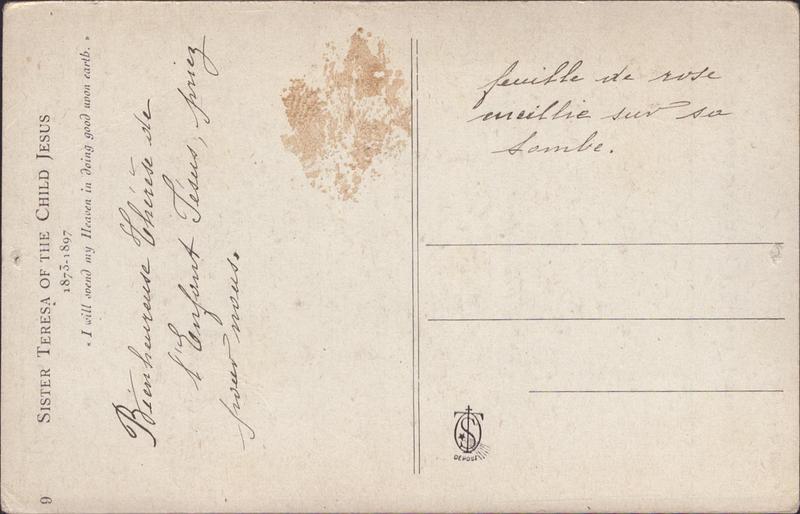 SISTER TERESA OF THE CHILD JESUS
1873-1897
« I will spend my Heaven in doing good upon earth. »
Bienheureuse Thérèse de
l'Enfant Jésus, priez
pour nous.
9
feuille de rose
cueillie sur sa
tombe.
DÉPOSÉ